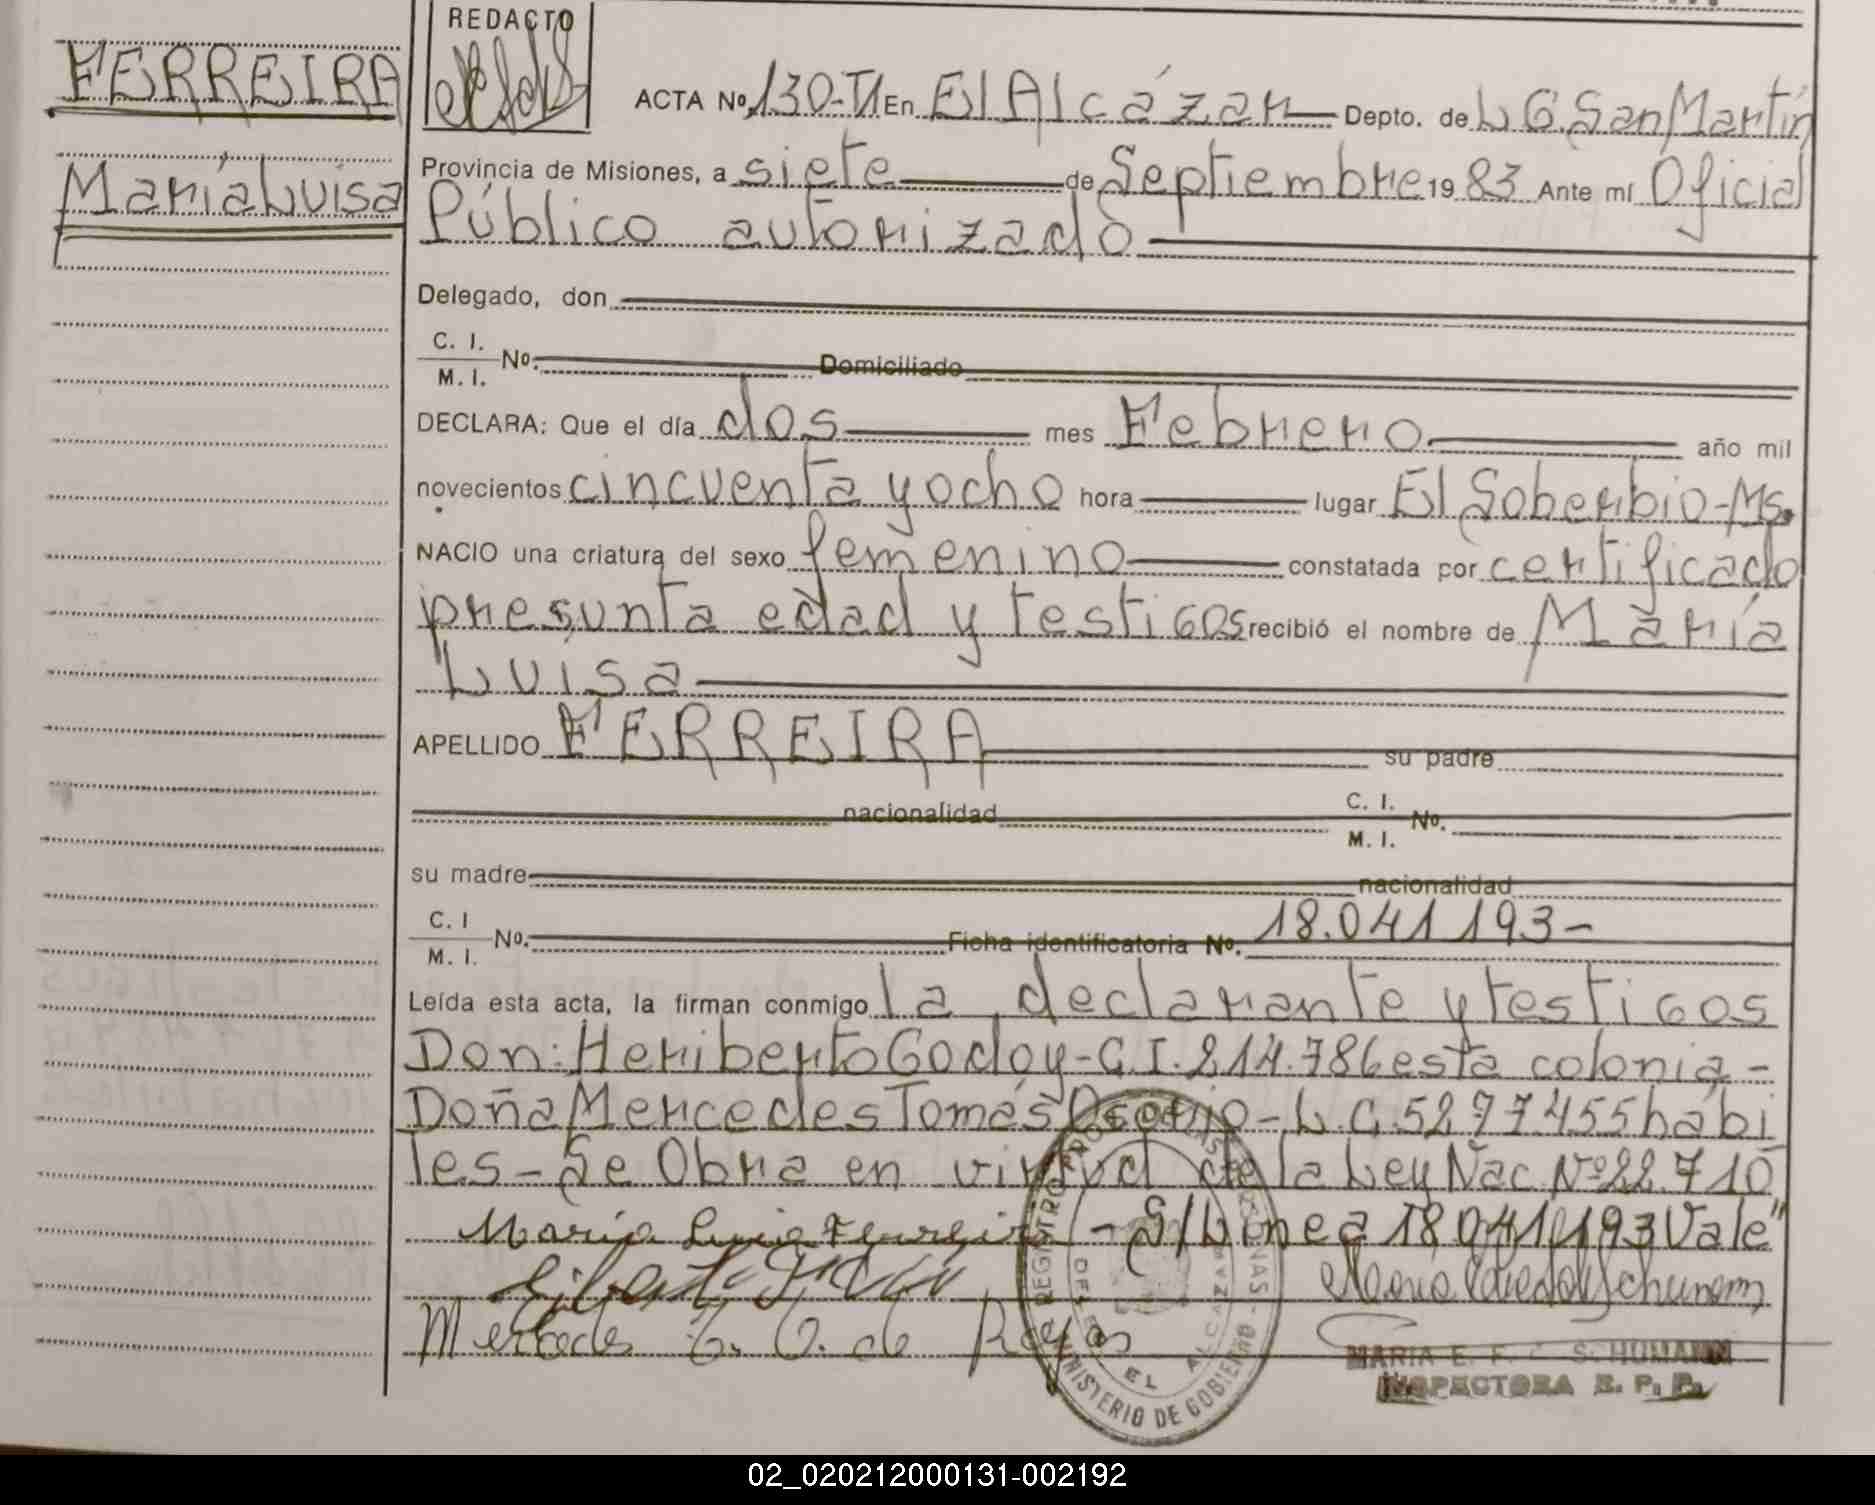 FERREIRA
María Luisa
REDACTO
ACTA Nº 130-TI En El Alcázar Depto. de L G. San Martín
Provincia de Misiones, a siete de Septiembre 19 83 Ante mí Oficial
Público autorizado
Delegado, don
C. I.
M. I. Nº. Domiciliado
DECLARA: Que el día dos mes Febrero año mil
novecientos cincuenta y ocho hora lugar El Soberbio-Ms.
NACIO una criatura del sexo femenino constatada por certificado
presunta edad y testigos recibió el nombre de María
Luisa
APELLIDO FERREIRA su padre
nacionalidad C. I.
M. I. Nº.
su madre nacionalidad
C. I
M. I. Nº. Ficha identificatoria Nº. 18.041 193-
Leída esta acta, la firman conmigo la declarante y testigos
Don: Heriberto Godoy-C.I. 214.786 esta colonia-
Doña Mercedes Tomás Osorio-L.C. 5277455 hábi
les-Se Obra en virtud de la Ley Nac Nº 22.710
María Luisa Ferreira - S/Línea 18 041 193 Vale"
Mercedes T. O. de Reyes
REGISTRO PROV. DE LAS PERSONAS - MINISTERIO DE GOBIERNO
OF. EL ALCAZAR
MARIA E. F. SCHUMANN
INSPECTORA R. P. P.
02_020212000131-002192